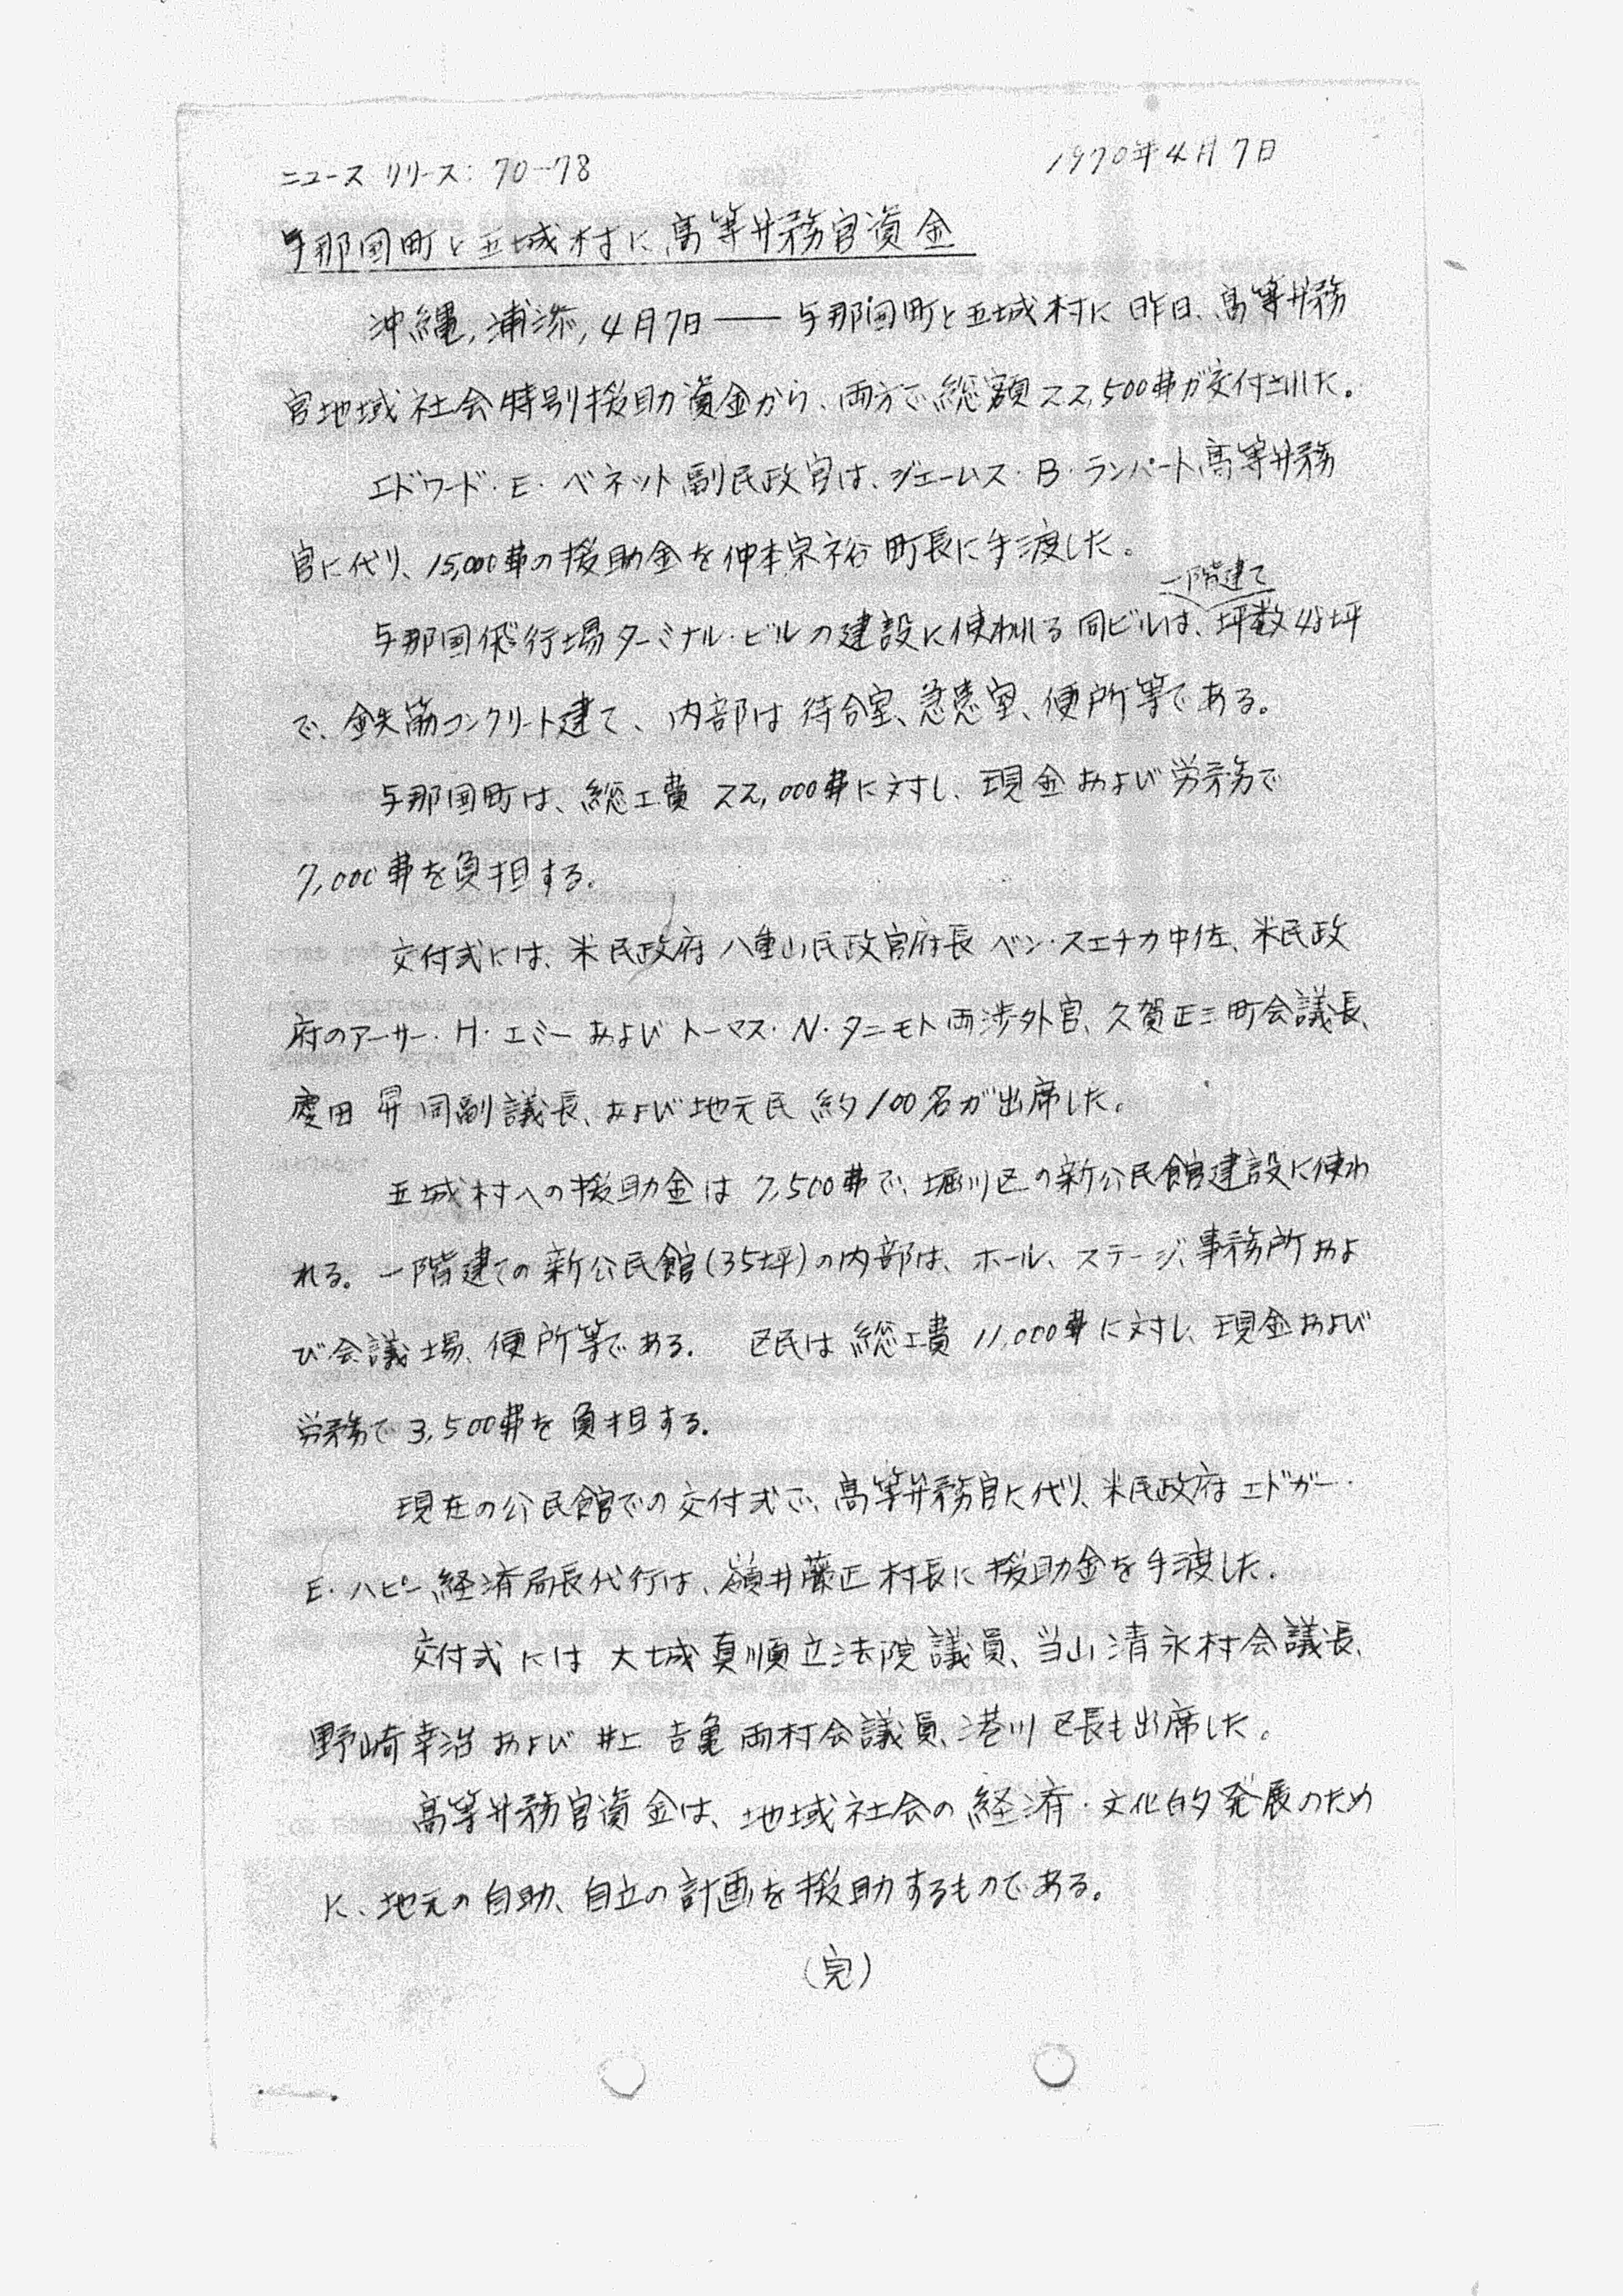 ニュース リリース: 70-78
1970年4月7日
与那国町と玉城村に高等弁務官資金
沖縄,浦添,4月7日――与那国町と玉城村に昨日、高等弁務
官地域社会特別援助資金から、両方で総額22,500弗が交付された。
エドワード・E・ベネット副民政官は、ジェームス・B・ランパート高等弁務
官に代り、15,000弗の援助金を仲本宗裕町長に手渡した。
一階建て
与那国飛行場ターミナル・ビルの建設に使われる同ビルは、坪数45坪
で、鉄筋コンクリート建て、内部は待合室、休憩室、便所等である。
与那国町は、総工費22,000弗に対し、現金および労務で
7,000弗を負担する。
交付式には、米民政府八重山民政官府長ベン・スエチカ中佐、米民政
府のアーサー・H・エミーおよびトーマス・N・タニモト両渉外官、久賀正三町会議長、
慶田 昇 同副議長、および地元民 約100名が出席した。
玉城村への援助金は7,500弗で、堀川区の新公民館建設に使わ
れる。一階建ての新公民館(35坪)の内部は、ホール、ステージ、事務所およ
び会議場、便所等である。 区民は総工費11,000弗に対し、現金および
労務で3,500弗を負担する。
現在の公民館での交付式で、高等弁務官に代り、米民政府エドガー・
E・ハピー経済局長代行は、嶺井藤正村長に援助金を手渡した。
交付式には大城真順立法院議員、当山清永村会議長、
野崎幸治および井上吉亀両村会議員、港川区長も出席した。
高等弁務官資金は、地域社会の経済・文化的発展のため
に、地元の自助、自立の計画を援助するものである。
(完)